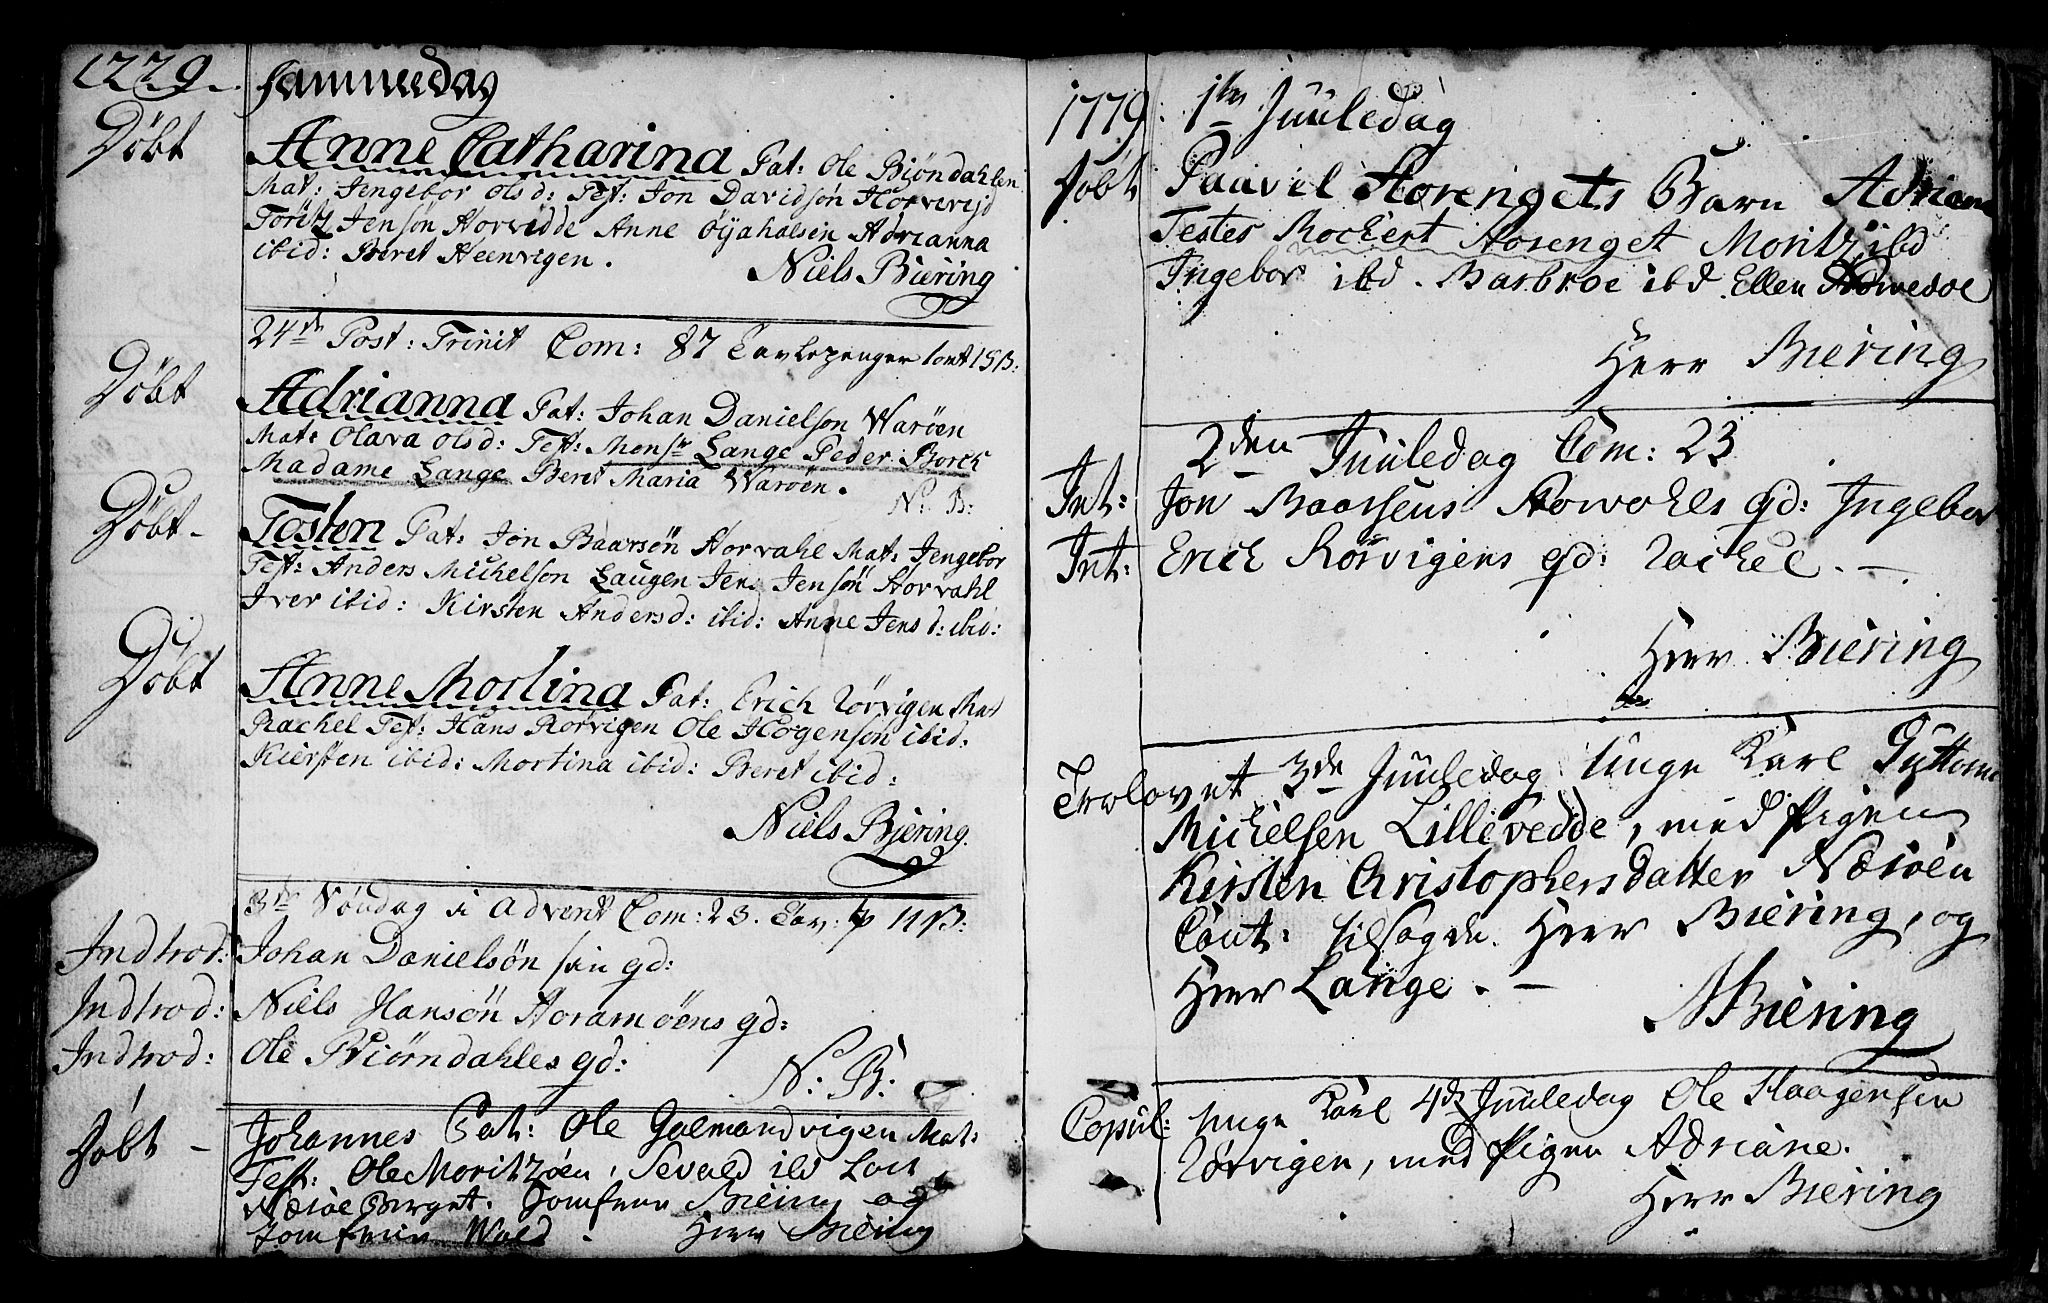 1779. Sammedag
Döbt Anne Catharina Pat: Ole Biöndahlen
Mat: Jengebor olsd: Test: Jon Davidsön Horvereid
Töritz Jensön Horvedde Anne Öÿahalsen Adrianna
ibid: Beret Heenvigen.
Niels Biering
24de Post: Trinit Com: 87 Tavlepenger
Döbt Adrianna Pat: Johan Danielsön Waröen
Mat: Olava olsd: Test: Monsr Lange Peder Borch
Madame Lange Beret Maria Waröen.
N: B:
Döbt - Tosten Pat: Jon Baarsön Horvahl Mat: Jengebor
Test: Anders Michelson Laugen Jens Jensön Horvahl
Iver ibid: Kirsten Andersd: ibid: Anne Jensd: ibid:
Döbt Anne Mortina Pat: Erich Rörvigen Mat
Rachel Test: Hans Rorvigen Ole Hogensön ibid:
Kiersten ibid: Mortina ibid: Beret ibid:
Niels Biering
3de Söndag i Advent Com: 23. Tav:
Indtrod: Johan Danielsön sin qd:
Indtrod: Niels Hansön Horamöens qd:
Indtrod: Ole Biörndahles qd:
N: B:
Döbt - Johannes Pat: Ole Galmandvigen Mat:
Test: Ole Moritzöen, Sevald ibd
Næröe Berget. Jomfrue Biering og
Jomfrue Wold. Herr Biering
1779. 1te Juuledag
Döbt Paavel Horengets Barn Adriane
Testes Rockert Horenget Moritz ibd
Ingebor ibd. Barbroe ibd. Ellen Horvedde
Herr Biering
2den Juuledag Com: 23
Int: Jon Baarsens Horvahls qd: Ingebor
Int: Erich Rörvigens qd: Rachel. -
Herr Biering
Trolovet 3de Juuledag Unge Karl Guttorm
Michelsen Lillevedde, med Pigen
Kirsten Christophersdatter Næröen
Caut: tilsagde Herr Biering, og
Herr Lange. -
NBiering
Copul: Unge Karl 4de Juuledag Ole Haagensen
Rörvigen, med Pigen Adriane.
Herr Biering